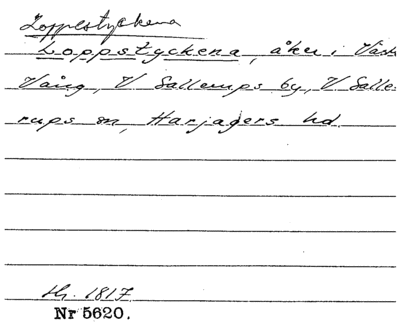 Loppestyckena
Loppstyckena, åker i Väst
Vång, V Sallerups by, V Salle-
rups sn, Harjagers hd.
1817
Nr 5620.